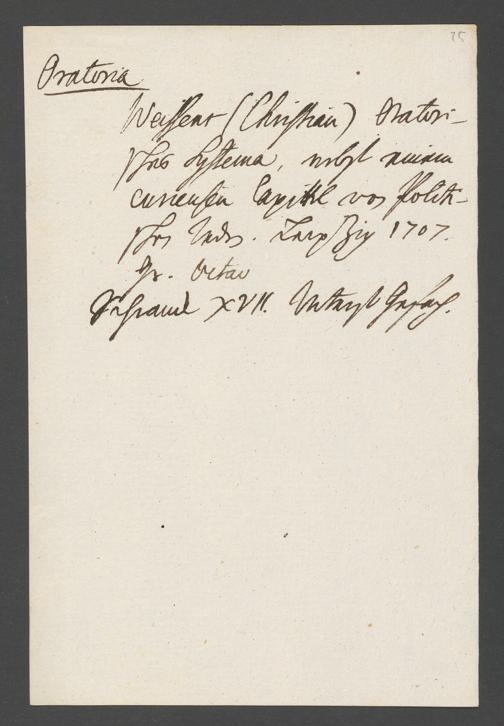 25
Oratoria
Weissens (Christian) Oratori-
sches Systema, nebst einem
curieusen Capitel von Politi-
schen Reden. Leipzig 1707.
gr. Octav
Schrank XVII. Unterst Gefach.